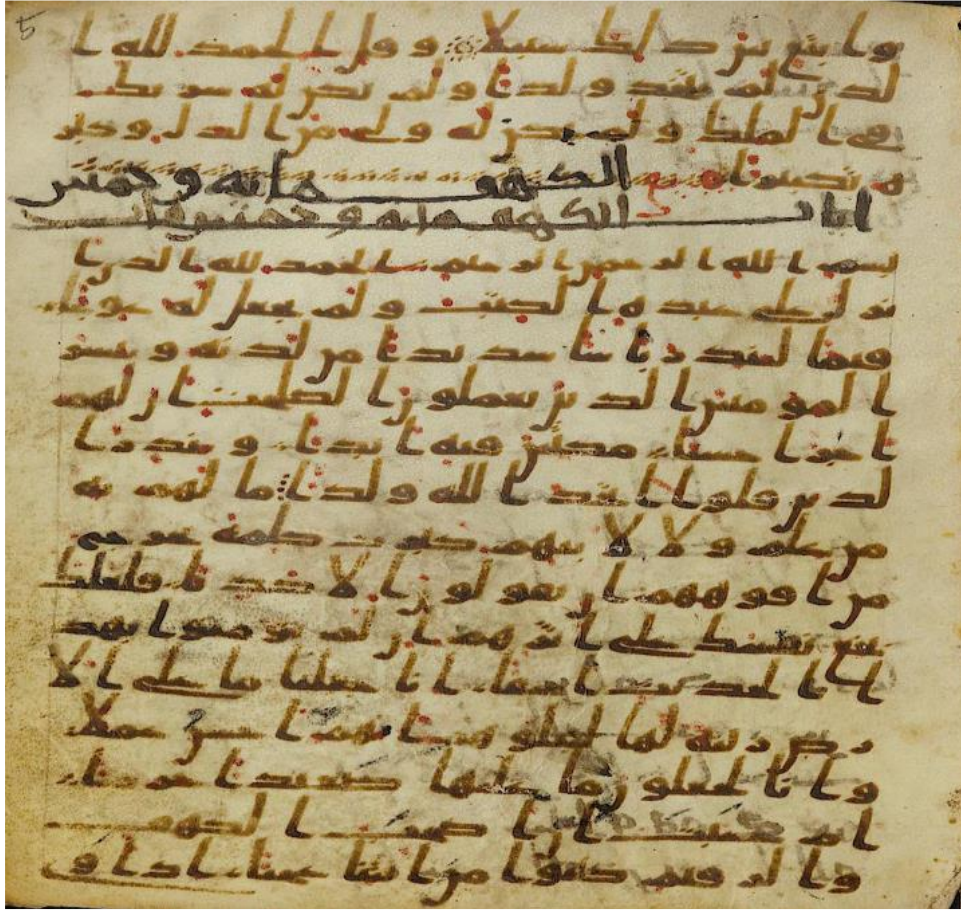 وابتغ بين ذلك سبيلا وقل الحمد لله ا
لذي لم يتخذ ولدا ولم يكن له شريك
في الملك ولم يكن له ولي من الذل وكبر
ه تكبيرا الكهف مايه وخمس
ايات الكهف مايه وخمس ايات
بسم الله الرحمن الرحيم الحمد لله الذي ا
نزل على عبده الكتب ولم يجعل له عوجا
قيما لينذر باسا شديدا من لدنه ويبشر
المومنين الذين يعملون الصلحت ان لهم
اجرا حسنا مكثين فيه ابدا وينذر ا
لذين قلوا اتخذ الله ولدا ما لهم به
من علم ولا لا بيهم كبرت كلمة تخرج
من افوههم ان يقولون الا كذبا فلعلك
بخع نفسك على اثرهم ان لم يومنوا بهذ
ا الحديث اسفا انا جعلنا ما على الا
رض زينة لها لنبلوهم ايهم احسن عملا
وانا لجعلون ما عليها صعيدا جرزا
ام حسبت ان اصحب الكهف
والرقيم كانوا من ايتنا عجبا اذ ا و